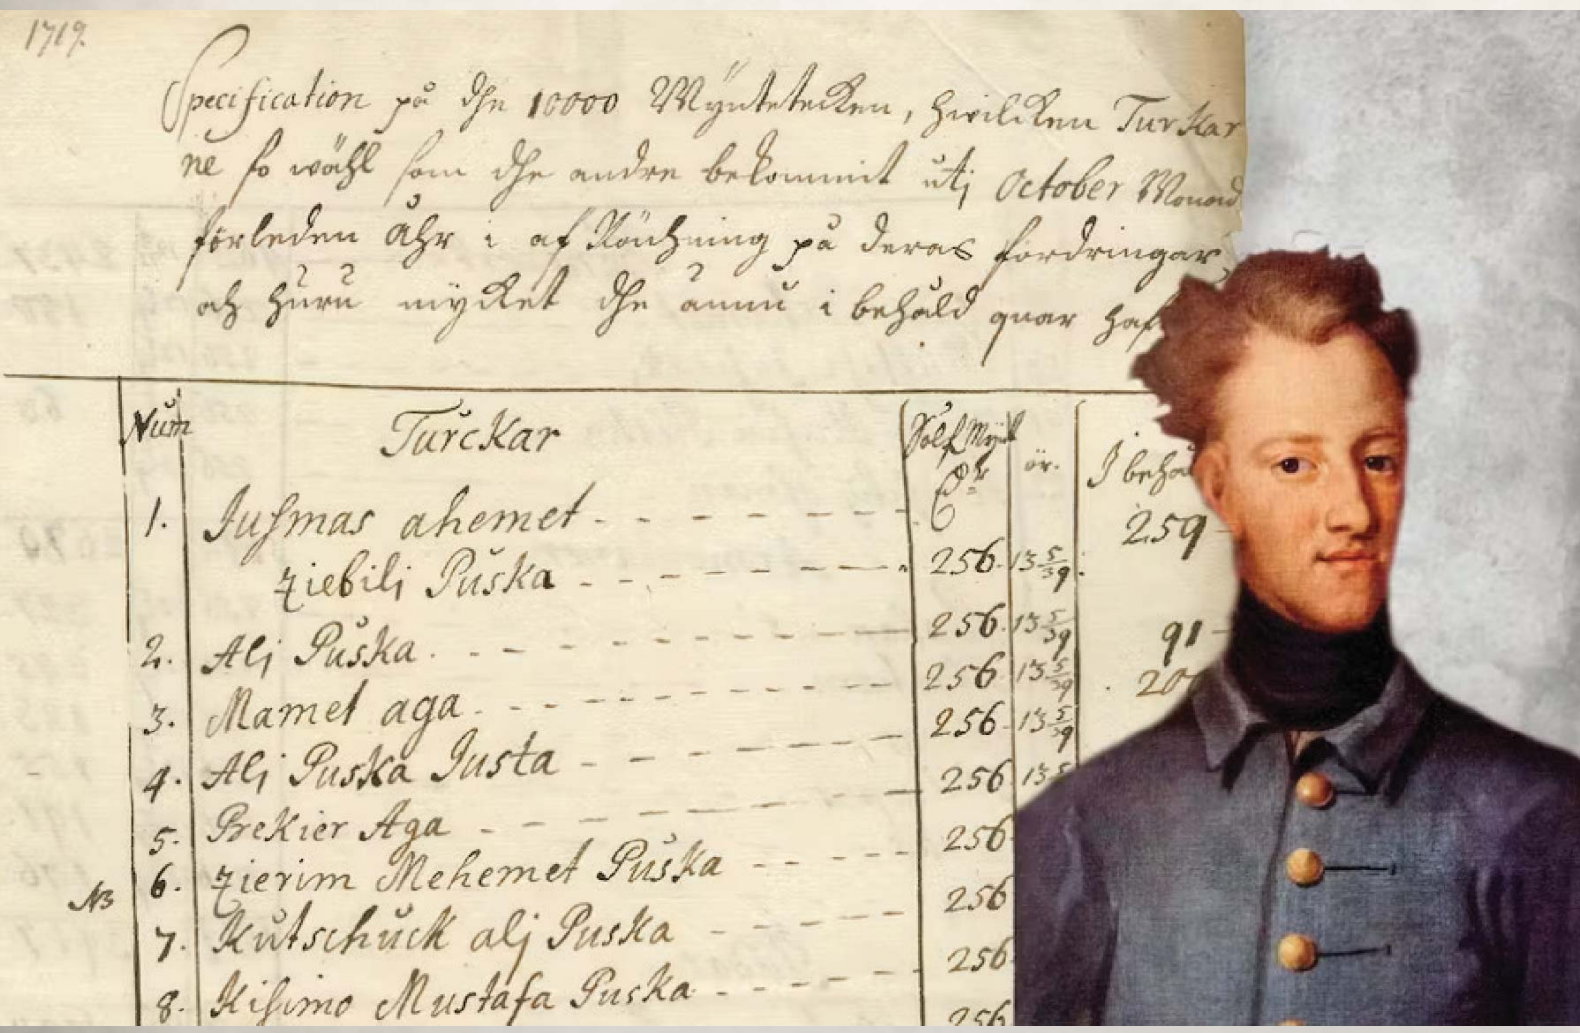 1719.
Specification på dhe 10000 Myntetecken, hwilcken Turckar
ne so wähl som dhe andre bekommit utj October Monad
förleden åhr i af Räckning på deras fordringar,
och huru mycket dhe ännu i behåld quar haf
Num Turckar Sölf Mynt ör. I behå
1. Jusmas ahemet 259
ziebili Puska 256 13 5/39
2. Alj Puska 256 13 5/39 91
3. Mamet aga 256 13 5/39 20
4. Alj Puska Justa 256 13 5/39
5. Brekier Aga 256 13 5
NB 6. zierim Mehemet Puska 256
7. Kutschuck alj Puska 256
8. Kisimo Mustafa Puska 256
256